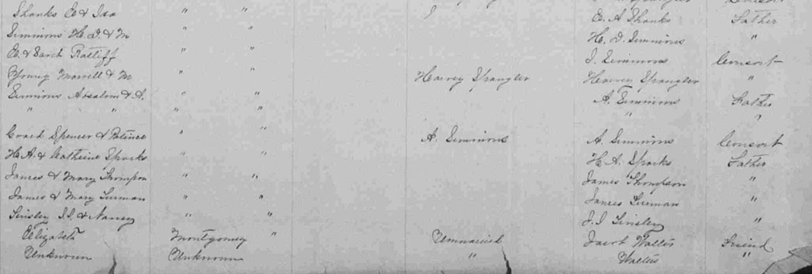 Shanks E & Isa " " E. A Shanks Father
Simmons H. D. & M " " H. D. Simmons "
& Sarah Ratliff " " J. Simmons Consort
Young Morrill & M " " Harvey Spangler Harvey Spangler "
Simmons Absalom & A. " " A. Simmons Father
" " " " " "
Coach Spencer & " " A. Simmons A. Simmons Consort
H. A. & Catherine Sparks " " H. A. Sparks Father
James & Mary Thompson " " James Thompson "
James & Mary Surman " " James Surman "
Tinsley J. J. & Nancy " " J. J Tinsley "
Elizabeth Montgomery " Unmarried Jacob Wallis Friend
Unknown Unknown " Wallis "